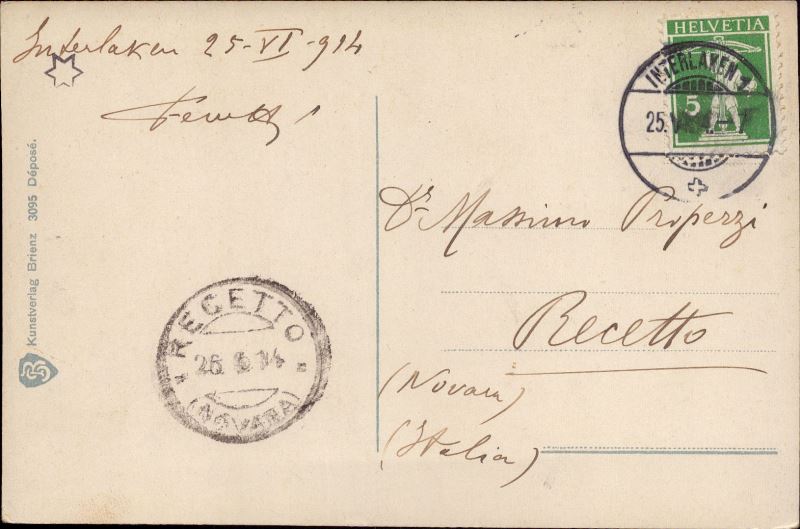 Interlaken 25-VI-914
HELVETIA
5
INTERLAKEN 1
25. VI. 14 – 7
Dr Massimo Properzi
Recetto
(Novara)
(Italia)
RECETTO
26 6 14
(NOVARA)
Kunstverlag Brienz 3095 Déposé.